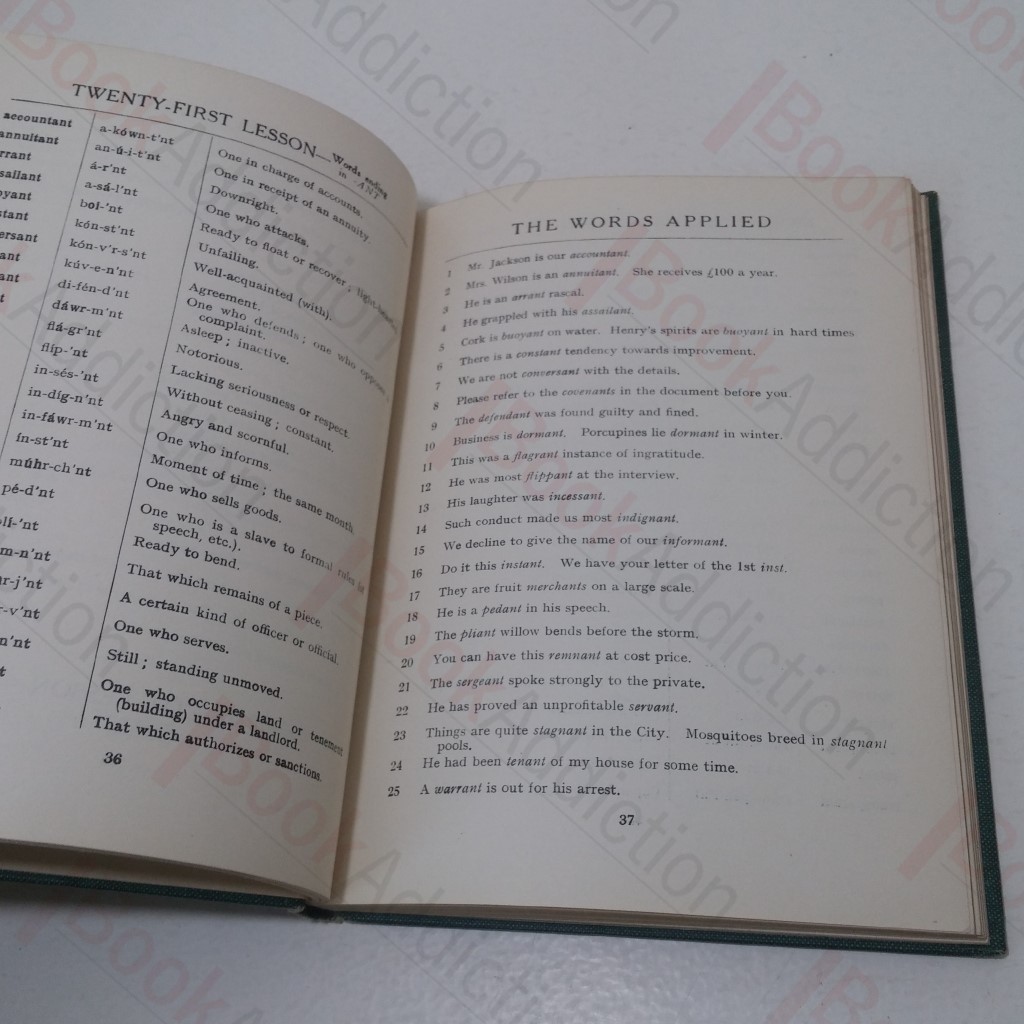 TWENTY-FIRST LESSON—Words ending in -ANT
accountant a-kówn-t'nt One in charge of accounts.
annuitant an-ú-i-t'nt One in receipt of an annuity.
rrant á-r'nt Downright.
sailant a-sá-l'nt One who attacks.
oyant boi-'nt Ready to float or recover; light-hearted.
stant kón-st'nt Unfailing.
ersant kón-v'r-s'nt Well-acquainted (with).
ant kúv-e-n'nt Agreement.
ant di-fén-d'nt One who defends; one who opposes a
complaint.
t dáwr-m'nt Asleep; inactive.
flá-gr'nt Notorious.
flíp-'nt Lacking seriousness or respect.
in-sés-'nt Without ceasing; constant.
in-díg-n'nt Angry and scornful.
in-fáwr-m'nt One who informs.
ín-st'nt Moment of time; the same month
múhr-ch'nt One who sells goods.
pé-d'nt One who is a slave to formal rules in
speech, etc.).
lí-'nt Ready to bend.
m-n'nt That which remains of a piece.
r-j'nt A certain kind of officer or official.
r-v'nt One who serves.
n'nt Still; standing unmoved.
t One who occupies land or tenement
(building) under a landlord.
That which authorizes or sanctions.
36
THE WORDS APPLIED
1 Mr. Jackson is our accountant.
2 Mrs. Wilson is an annuitant. She receives £100 a year.
3 He is an arrant rascal.
4 He grappled with his assailant.
5 Cork is buoyant on water. Henry's spirits are buoyant in hard times
6 There is a constant tendency towards improvement.
7 We are not conversant with the details.
8 Please refer to the covenants in the document before you.
9 The defendant was found guilty and fined.
10 Business is dormant. Porcupines lie dormant in winter.
11 This was a flagrant instance of ingratitude.
12 He was most flippant at the interview.
13 His laughter was incessant.
14 Such conduct made us most indignant.
15 We decline to give the name of our informant.
16 Do it this instant. We have your letter of the 1st inst.
17 They are fruit merchants on a large scale.
18 He is a pedant in his speech.
19 The pliant willow bends before the storm.
20 You can have this remnant at cost price.
21 The sergeant spoke strongly to the private.
22 He has proved an unprofitable servant.
23 Things are quite stagnant in the City. Mosquitoes breed in stagnant
pools.
24 He had been tenant of my house for some time.
25 A warrant is out for his arrest.
37
BookAddiction